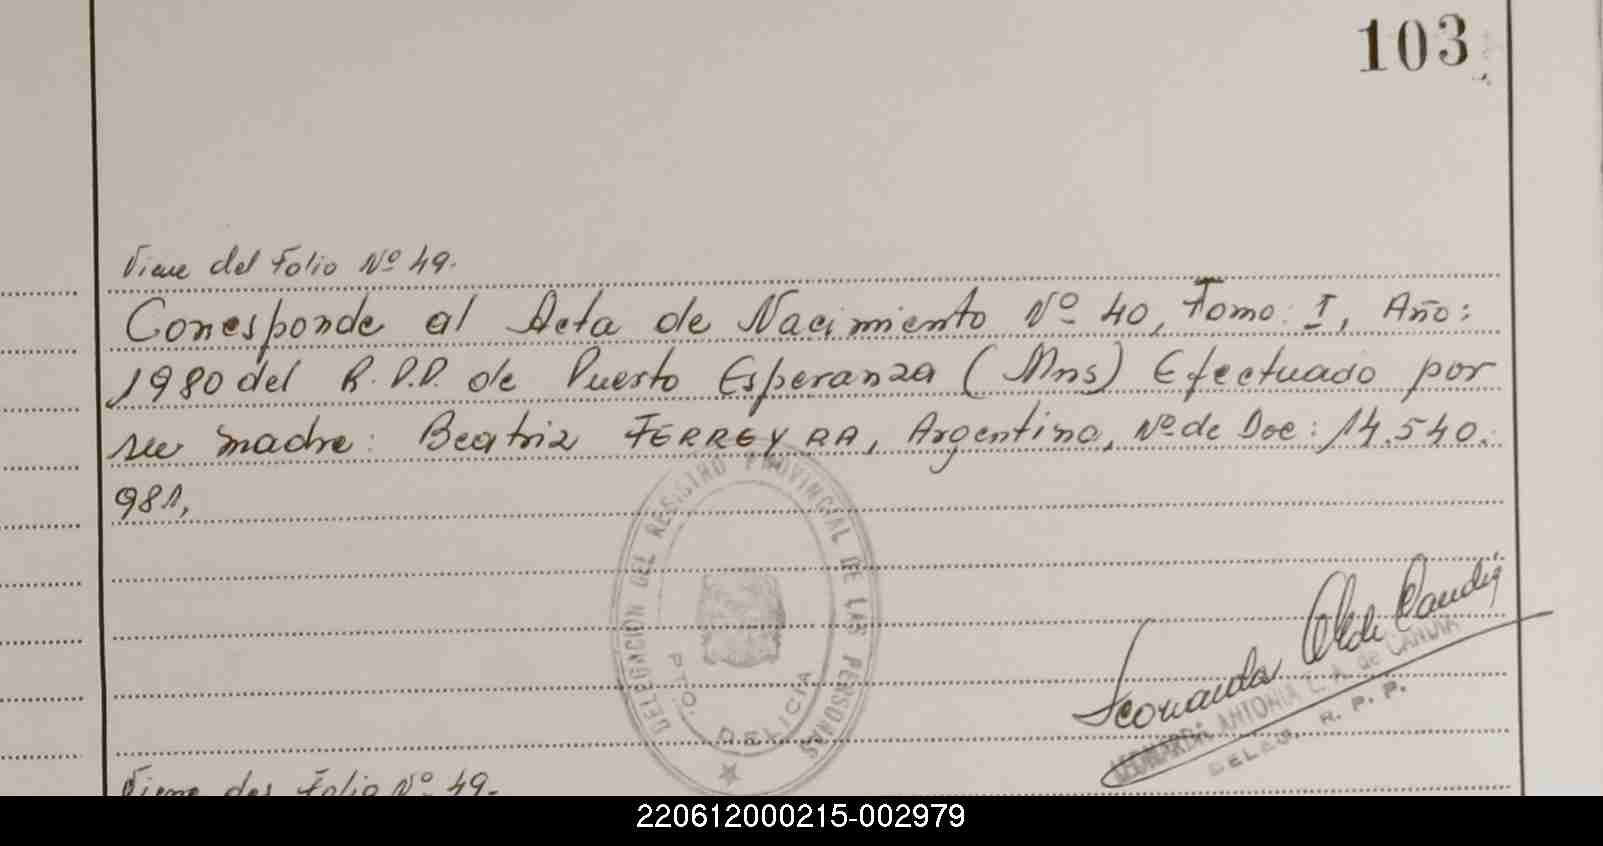 103
Viene del Folio Nº 49.
Corresponde al Acta de Nacimiento Nº 40, Tomo: I, Año:
1980 del R.P.P. de Puerto Esperanza (Mns) Efectuado por
su madre: Beatriz FERREYRA, Argentina, Nº de Doc: 14.540.
981,
DELEGACION DEL REGISTRO PROVINCIAL DE LAS PERSONAS
PTO. DELICIA
Leonarda A. de Candia
LEONARDA ANTONIA L. A. de CANDIA
DELEG. R. P. P.
Viene del Folio Nº 49.
220612000215-002979